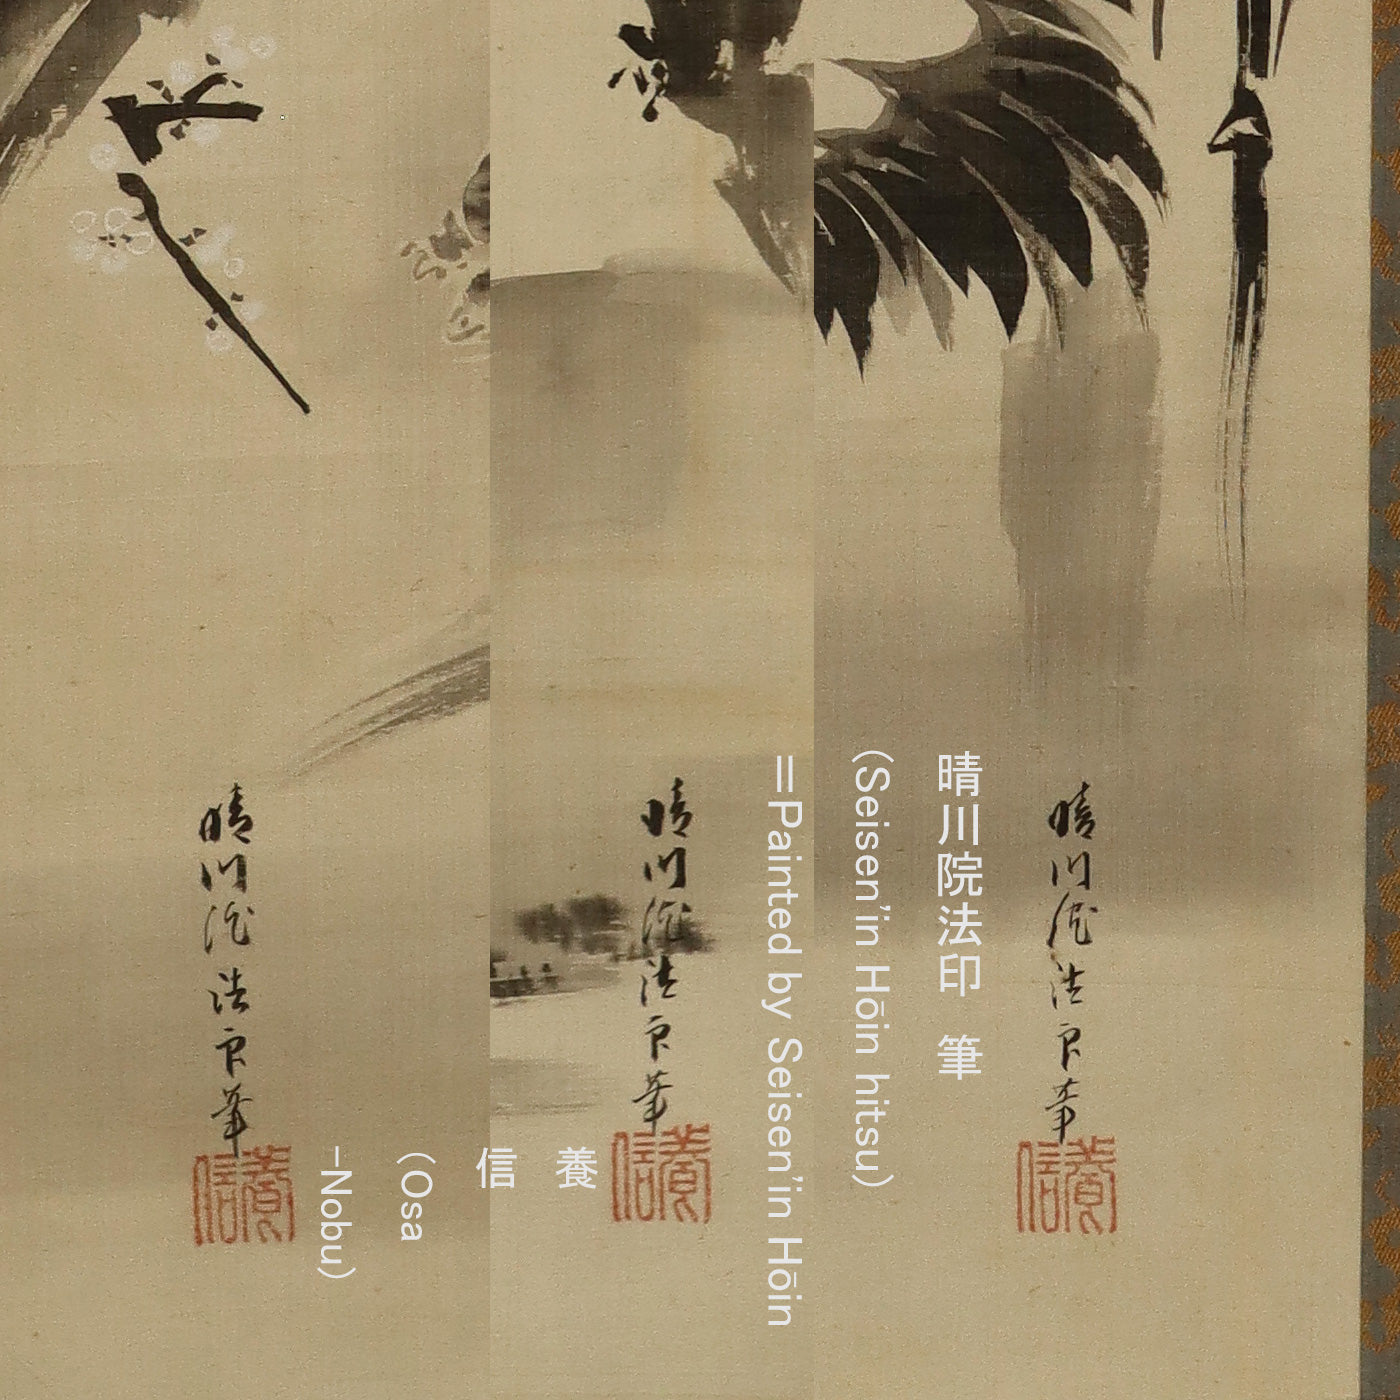 晴川院法印 筆
(Seisen'in Hōin hitsu)
=Painted by Seisen'in Hōin
養信
(Osa
-Nobu)
晴川院法印筆
養信
晴川院法印筆
養信
晴川院法印筆
養信